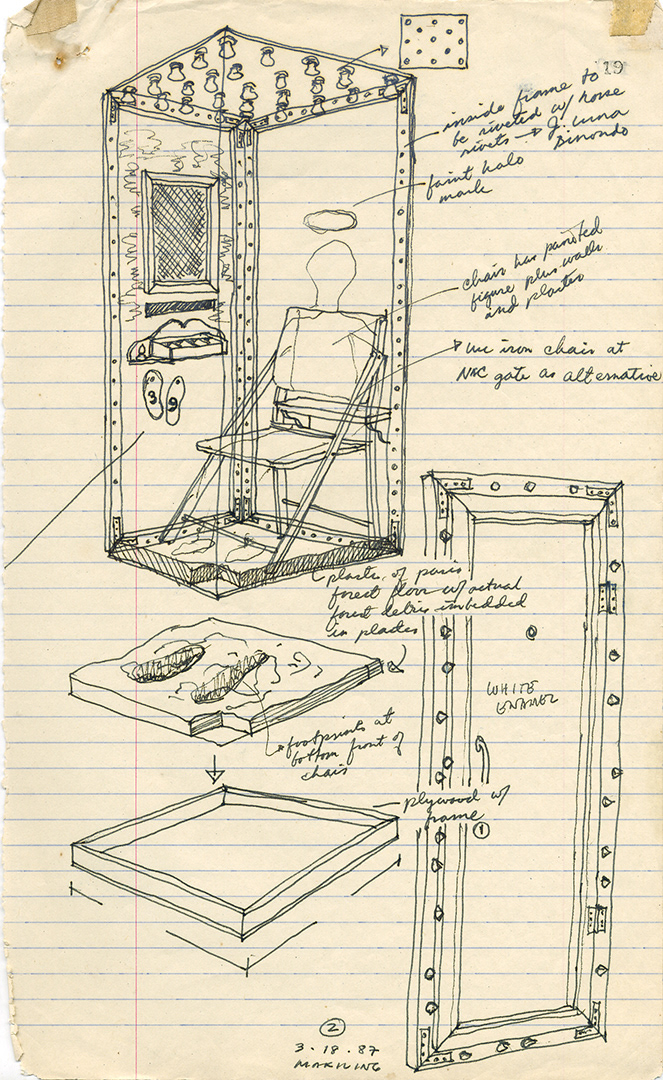 19
inside frame to
be riveted w/ horse
rivets → J. Luna
Binondo
faint halo
mark
chair has painted
figure plus walls
and plaster
use iron chair at
NAC gate as alternative
plaster of paris
forest floor w/ actual
forest detris imbedded
in plaster
WHITE
ENAMEL
footprints at
bottom front of
chair
plywood w/
frame
1
2
3·18·87
MAKILING